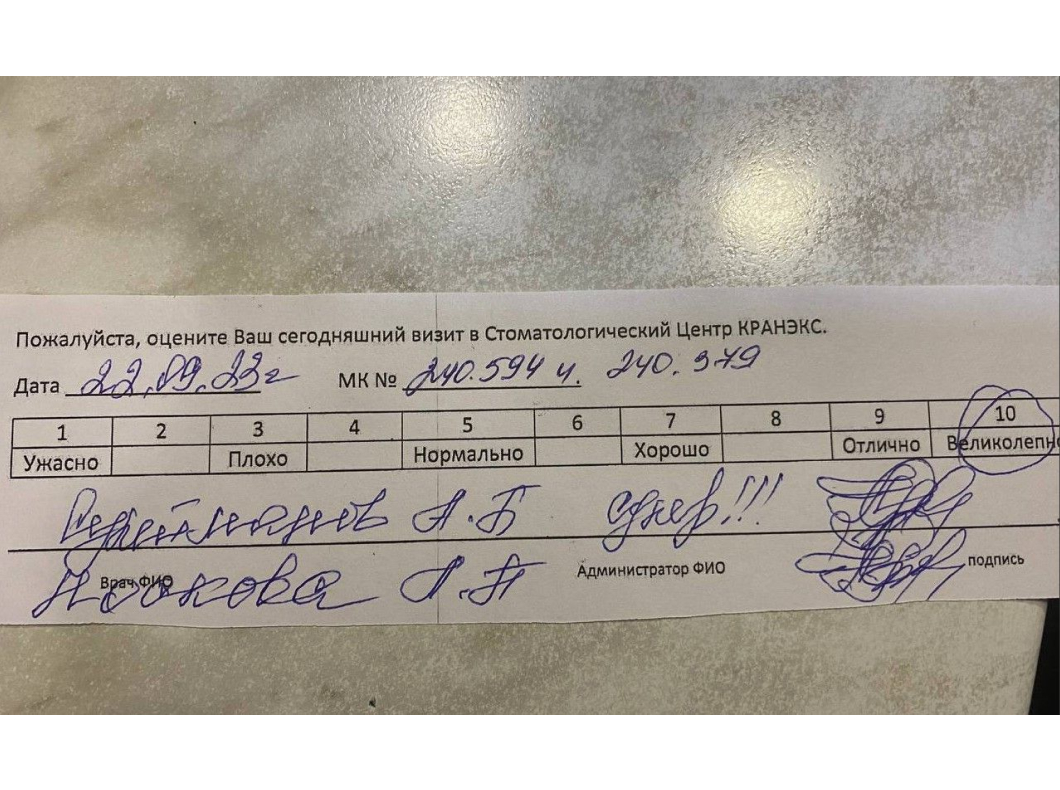 Пожалуйста, оцените Ваш сегодняшний визит в Стоматологический Центр КРАНЭКС.
Дата 22.09.23г МК № 240.594 и. 240.379
1 2 3 4 5 6 7 8 9 10
Ужасно Плохо Нормально Хорошо Отлично Великолепно
А.Б супер!!!
Врач ФИО Администратор ФИО подпись
А.П